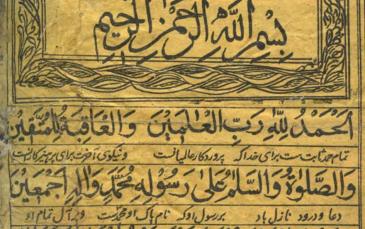 بِسْمِ اللهِ الرَّحْمٰنِ الرَّحِيْمِ
اَلْحَمْدُ لِلّٰهِ رَبِّ الْعٰلَمِيْنَ وَالْعَاقِبَةُ لِلْمُتَّقِيْنَ
تمام حمد ثابت ست برای خدا که پروردگار عالمیانست و نیکوی آخرت برای پرهیزگارانست
وَالصَّلٰوةُ وَالسَّلٰمُ عَلٰى رَسُوْلِهٖ مُحَمَّدٍ وَّاٰلِهٖ اَجْمَعِيْنَ
دعا و درود نازل باد بر رسول او که نام پاک او محمد ست و بر آل تمام او